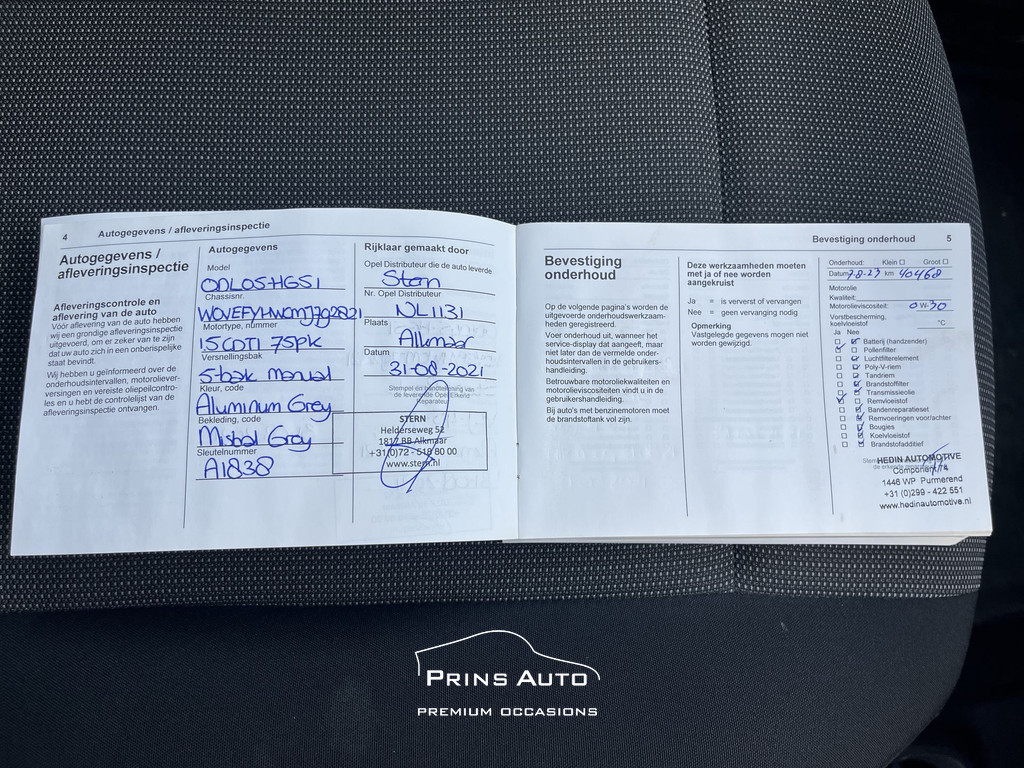 4 Autogegevens / afleveringsinspectie
Autogegevens /
afleveringsinspectie
Afleveringscontrole en
aflevering van de auto
Vóór aflevering van de auto hebben
wij een grondige afleveringsinspectie
uitgevoerd, om er zeker van te zijn
dat uw auto zich in een onberispelijke
staat bevindt.
Wij hebben u geïnformeerd over de
onderhoudsintervallen, motoroliever-
versingen en vereiste oliepeilcontro-
les en u hebt de controlelijst van de
afleveringsinspectie ontvangen.
Autogegevens
Model
Chassisnr.
Motortype, nummer
15CDTI 75PK
Versnellingsbak
5-bak manual
Kleur, code
Aluminum Grey
Bekleding, code
Mistral Grey
Sleutelnummer
A1838
Rijklaar gemaakt door
Opel Distributeur die de auto leverde
Stern
Nr. Opel Distributeur
NL1131
Plaats
Alkmaar
Datum
31-08-2021
Stempel en handtekening van
de leverende Opel Erkend
Reparateur
STERN
Helderseweg 52
1817 BB Alkmaar
+31(0)72 - 518 80 00
www.stern.nl
Bevestiging onderhoud 5
Bevestiging
onderhoud
Op de volgende pagina's worden de
uitgevoerde onderhoudswerkzaam-
heden geregistreerd.
Voer onderhoud uit, wanneer het
service-display dat aangeeft, maar
niet later dan de vermelde onder-
houdsintervallen in de gebruikers-
handleiding.
Betrouwbare motoroliekwaliteiten en
motorolieviscositeiten vindt u in de
gebruikershandleiding.
Bij auto's met benzinemotoren moet
de brandstoftank vol zijn.
Deze werkzaamheden moeten
met ja of nee worden
aangekruist
Ja = is ververst of vervangen
Nee = geen vervanging nodig
Opmerking
Vastgelegde gegevens mogen niet
worden gewijzigd.
Onderhoud: Klein Groot
Datum 7-8-23 km 40468
Motorolie
Kwaliteit:
Motorolieviscositeit: 0 W-30
Vorstbescherming,
koelvloeistof °C
Ja Nee
Batterij (handzender)
Pollenfilter
Luchtfilterelement
Poly-V-riem
Tandriem
Brandstoffilter
Transmissieolie
Remvloeistof
Bandenreparatieset
Remvoeringen voor/achter
Bougies
Koelvloeistof
Brandstofadditief
HEDIN AUTOMOTIVE
Componen 74
1446 WP Purmerend
+31 (0)299 - 422 551
www.hedinautomotive.nl
PRINS AUTO
PREMIUM OCCASIONS